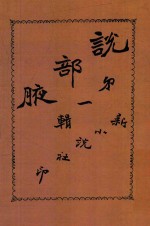 說部腋
第一輯
新小說社印